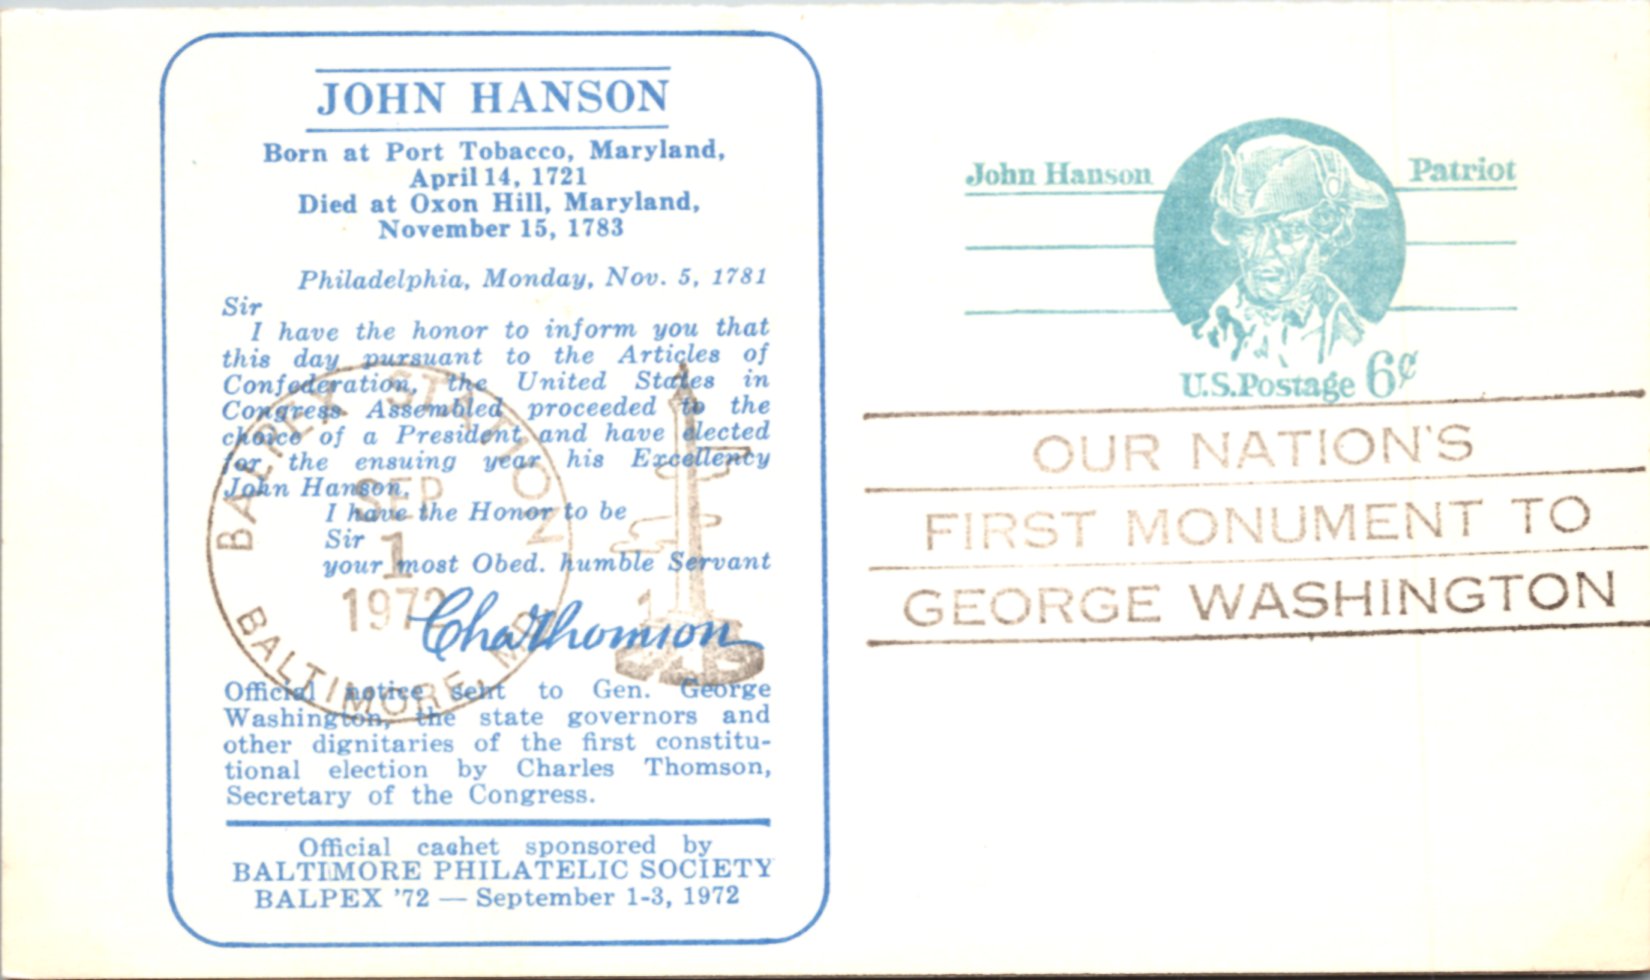 JOHN HANSON
Born at Port Tobacco, Maryland,
April 14, 1721
Died at Oxon Hill, Maryland,
November 15, 1783
Philadelphia, Monday, Nov. 5, 1781
Sir
I have the honor to inform you that
this day pursuant to the Articles of
Confederation, the United States in
Congress Assembled proceeded to the
choice of a President and have elected
for the ensuing year his Excellency
John Hanson,
I have the Honor to be
Sir
your most Obed. humble Servant
Cha Thomson
Official notice sent to Gen. George
Washington, the state governors and
other dignitaries of the first constitu-
tional election by Charles Thomson,
Secretary of the Congress.
Official cachet sponsored by
BALTIMORE PHILATELIC SOCIETY
BALPEX '72 — September 1-3, 1972
BALPEX STATION
SEP
1
1972
BALTIMORE, MD
John Hanson Patriot
U.S.Postage 6¢
OUR NATION'S
FIRST MONUMENT TO
GEORGE WASHINGTON